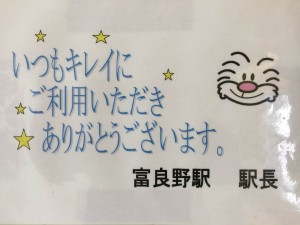 いつもキレイに
ご利用いただき
ありがとうございます。
富良野駅　駅長